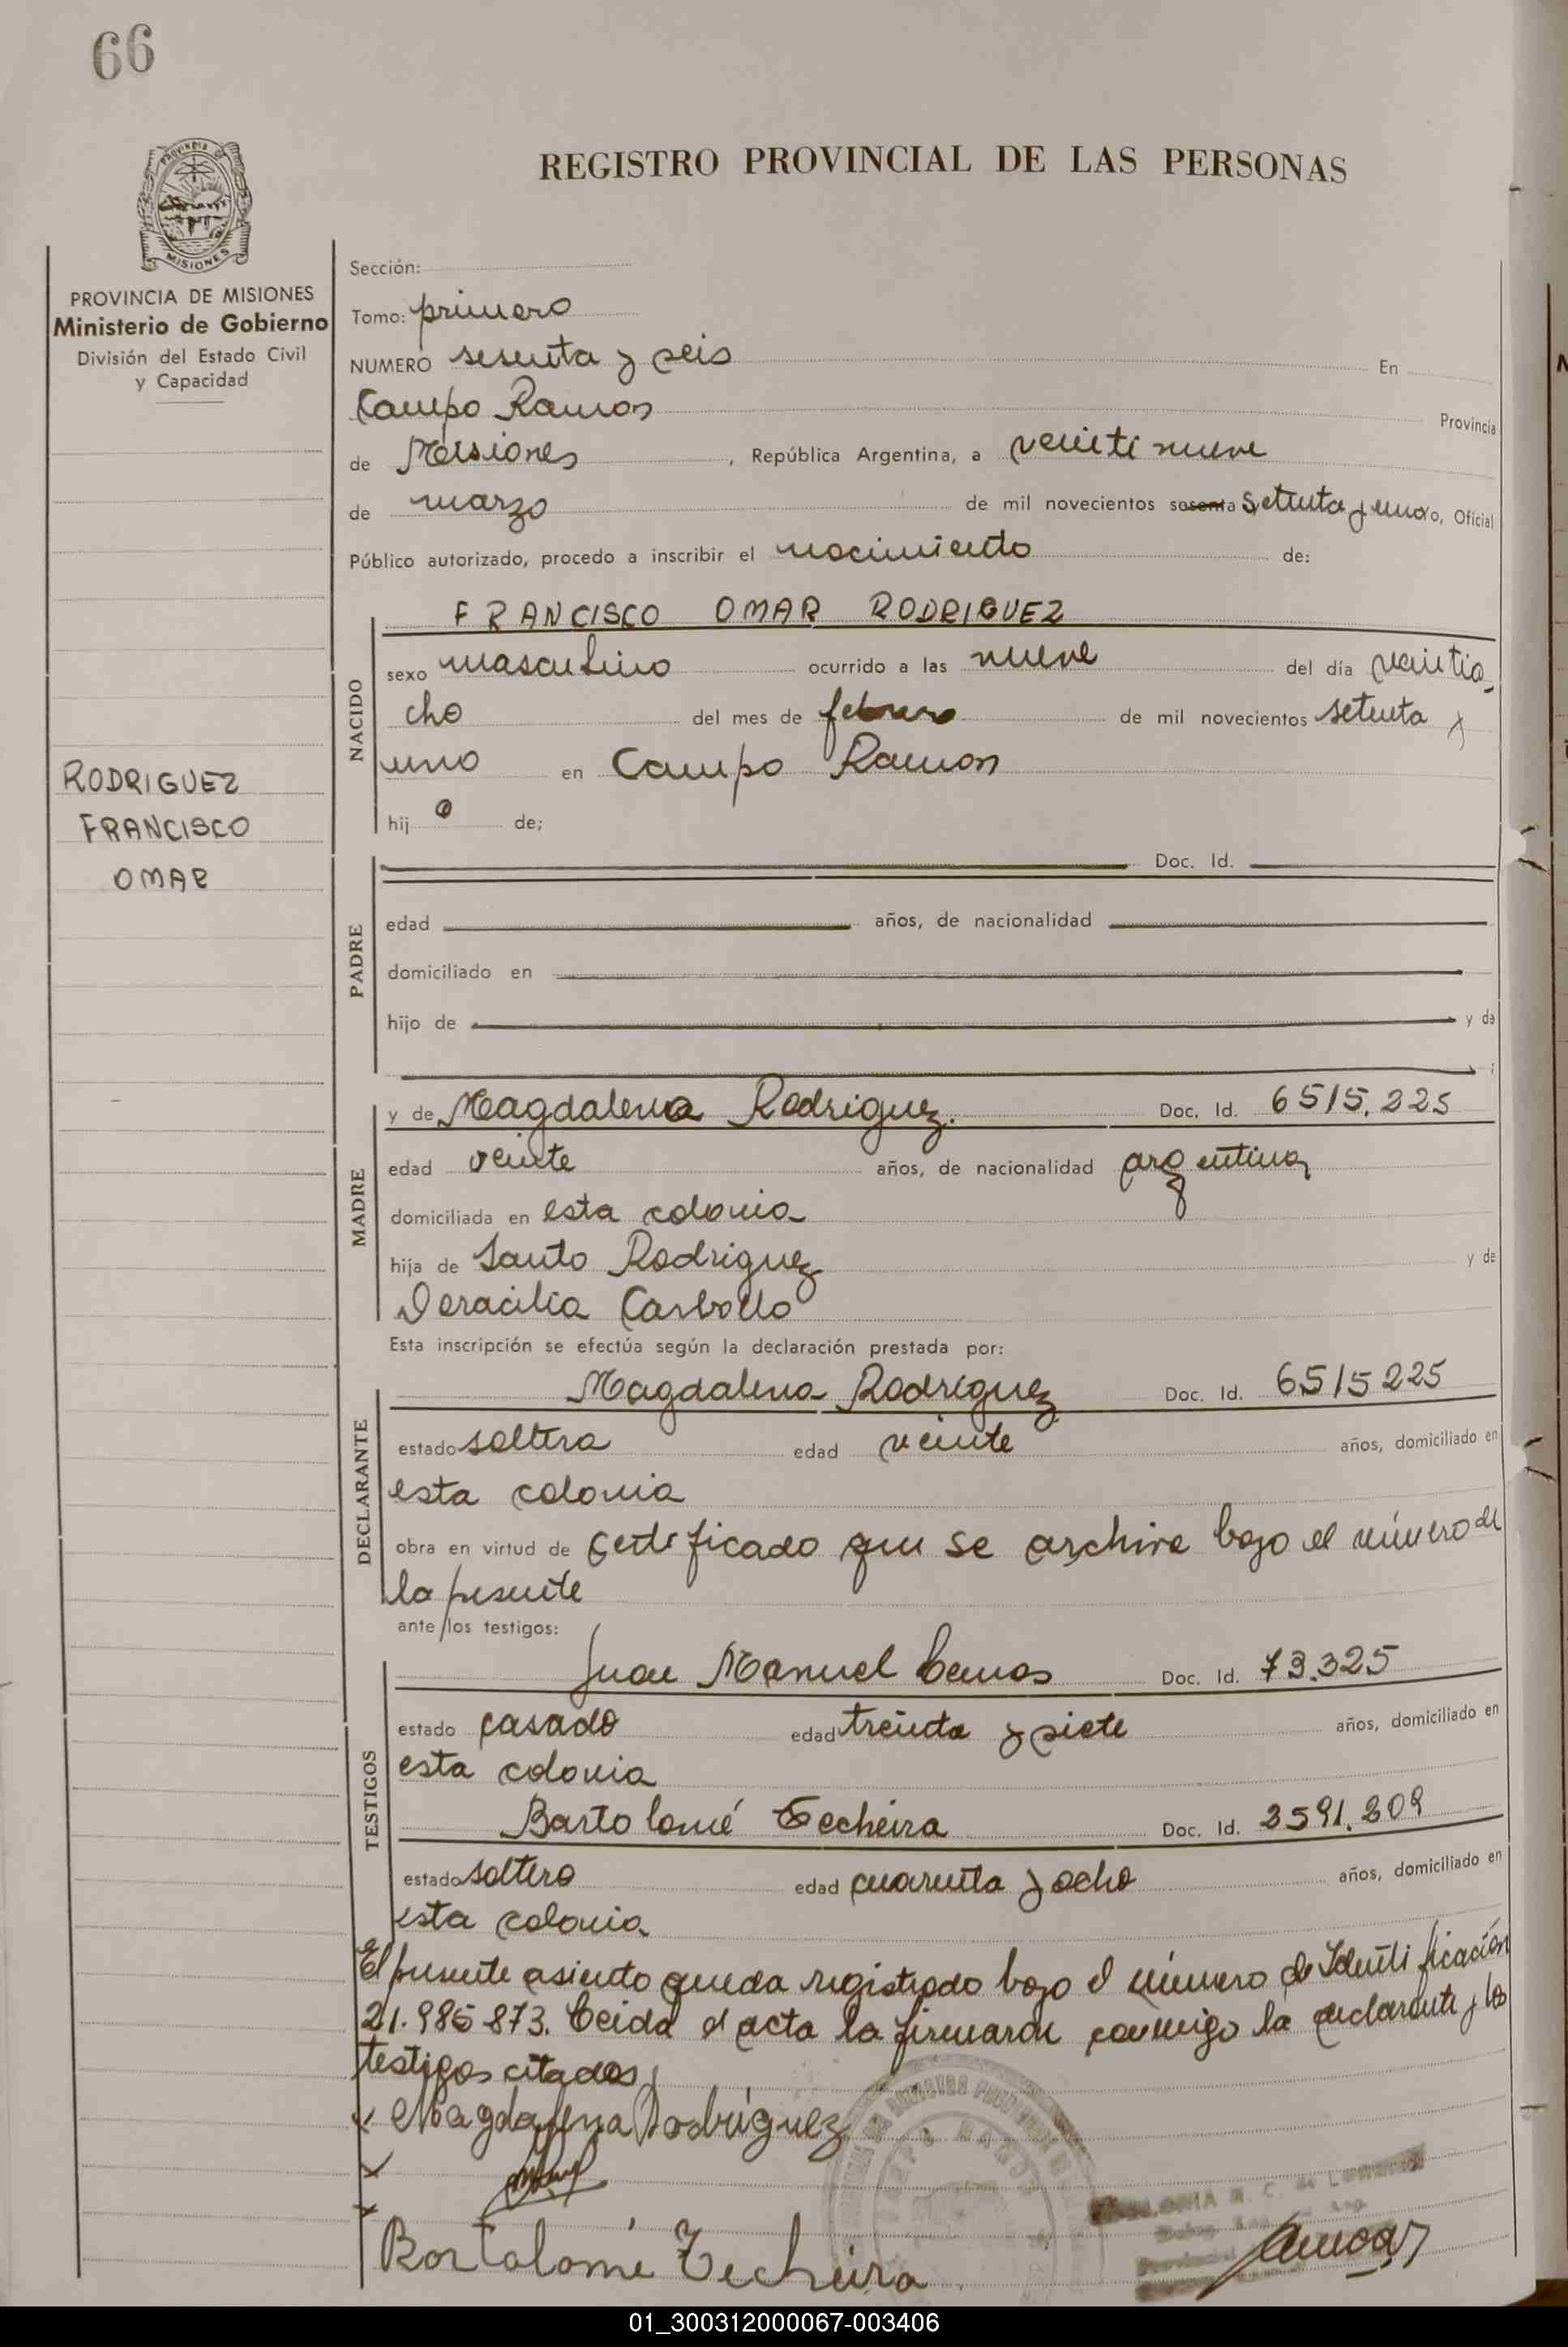 66
PROVINCIA
MISIONES
REGISTRO PROVINCIAL DE LAS PERSONAS
PROVINCIA DE MISIONES
Ministerio de Gobierno
División del Estado Civil
y Capacidad
RODRIGUEZ
FRANCISCO
OMAR
Sección:
Tomo: primero
NUMERO sesenta y seis En
Campo Ramon Provincia
de Misiones, República Argentina, a veinte nueve
de marzo de mil novecientos sesenta setenta y uno, Oficial
Público autorizado, procedo a inscribir el nacimiento de:
NACIDO
FRANCISCO OMAR RODRIGUEZ
sexo masculino ocurrido a las nueve del día veintio
cho del mes de febrero de mil novecientos setenta y
uno en Campo Ramon
hij o de;
PADRE
Doc. Id.
edad años, de nacionalidad
domiciliado en
hijo de y de
;
MADRE
y de Magdalena Rodriguez. Doc. Id. 6515.225
edad veinte años, de nacionalidad argentina
domiciliada en esta colonia
hija de Santo Rodriguez y de
Deracilia Carballo
Esta inscripción se efectúa según la declaración prestada por:
DECLARANTE
Magdalena Rodriguez Doc. Id. 6515225
estado soltera edad veinte años, domiciliado en
esta colonia
obra en virtud de certificado que se archiva bajo el número de
la presente
ante los testigos:
TESTIGOS
Juan Manuel Doc. Id. 73.325
estado casado edad treinta y siete años, domiciliado en
esta colonia
Bartolomé Techeira Doc. Id. 2591.209
estado soltero edad cuarenta y ocho años, domiciliado en
esta colonia
El presente asiento queda registrado bajo el número de Identificación
21.985873. Leida el acta la firmaron conmigo la declarante y los
testigos citados
x Magdalena Rodríguez
x
x
Bortolomé Techeira
01_300312000067-003406